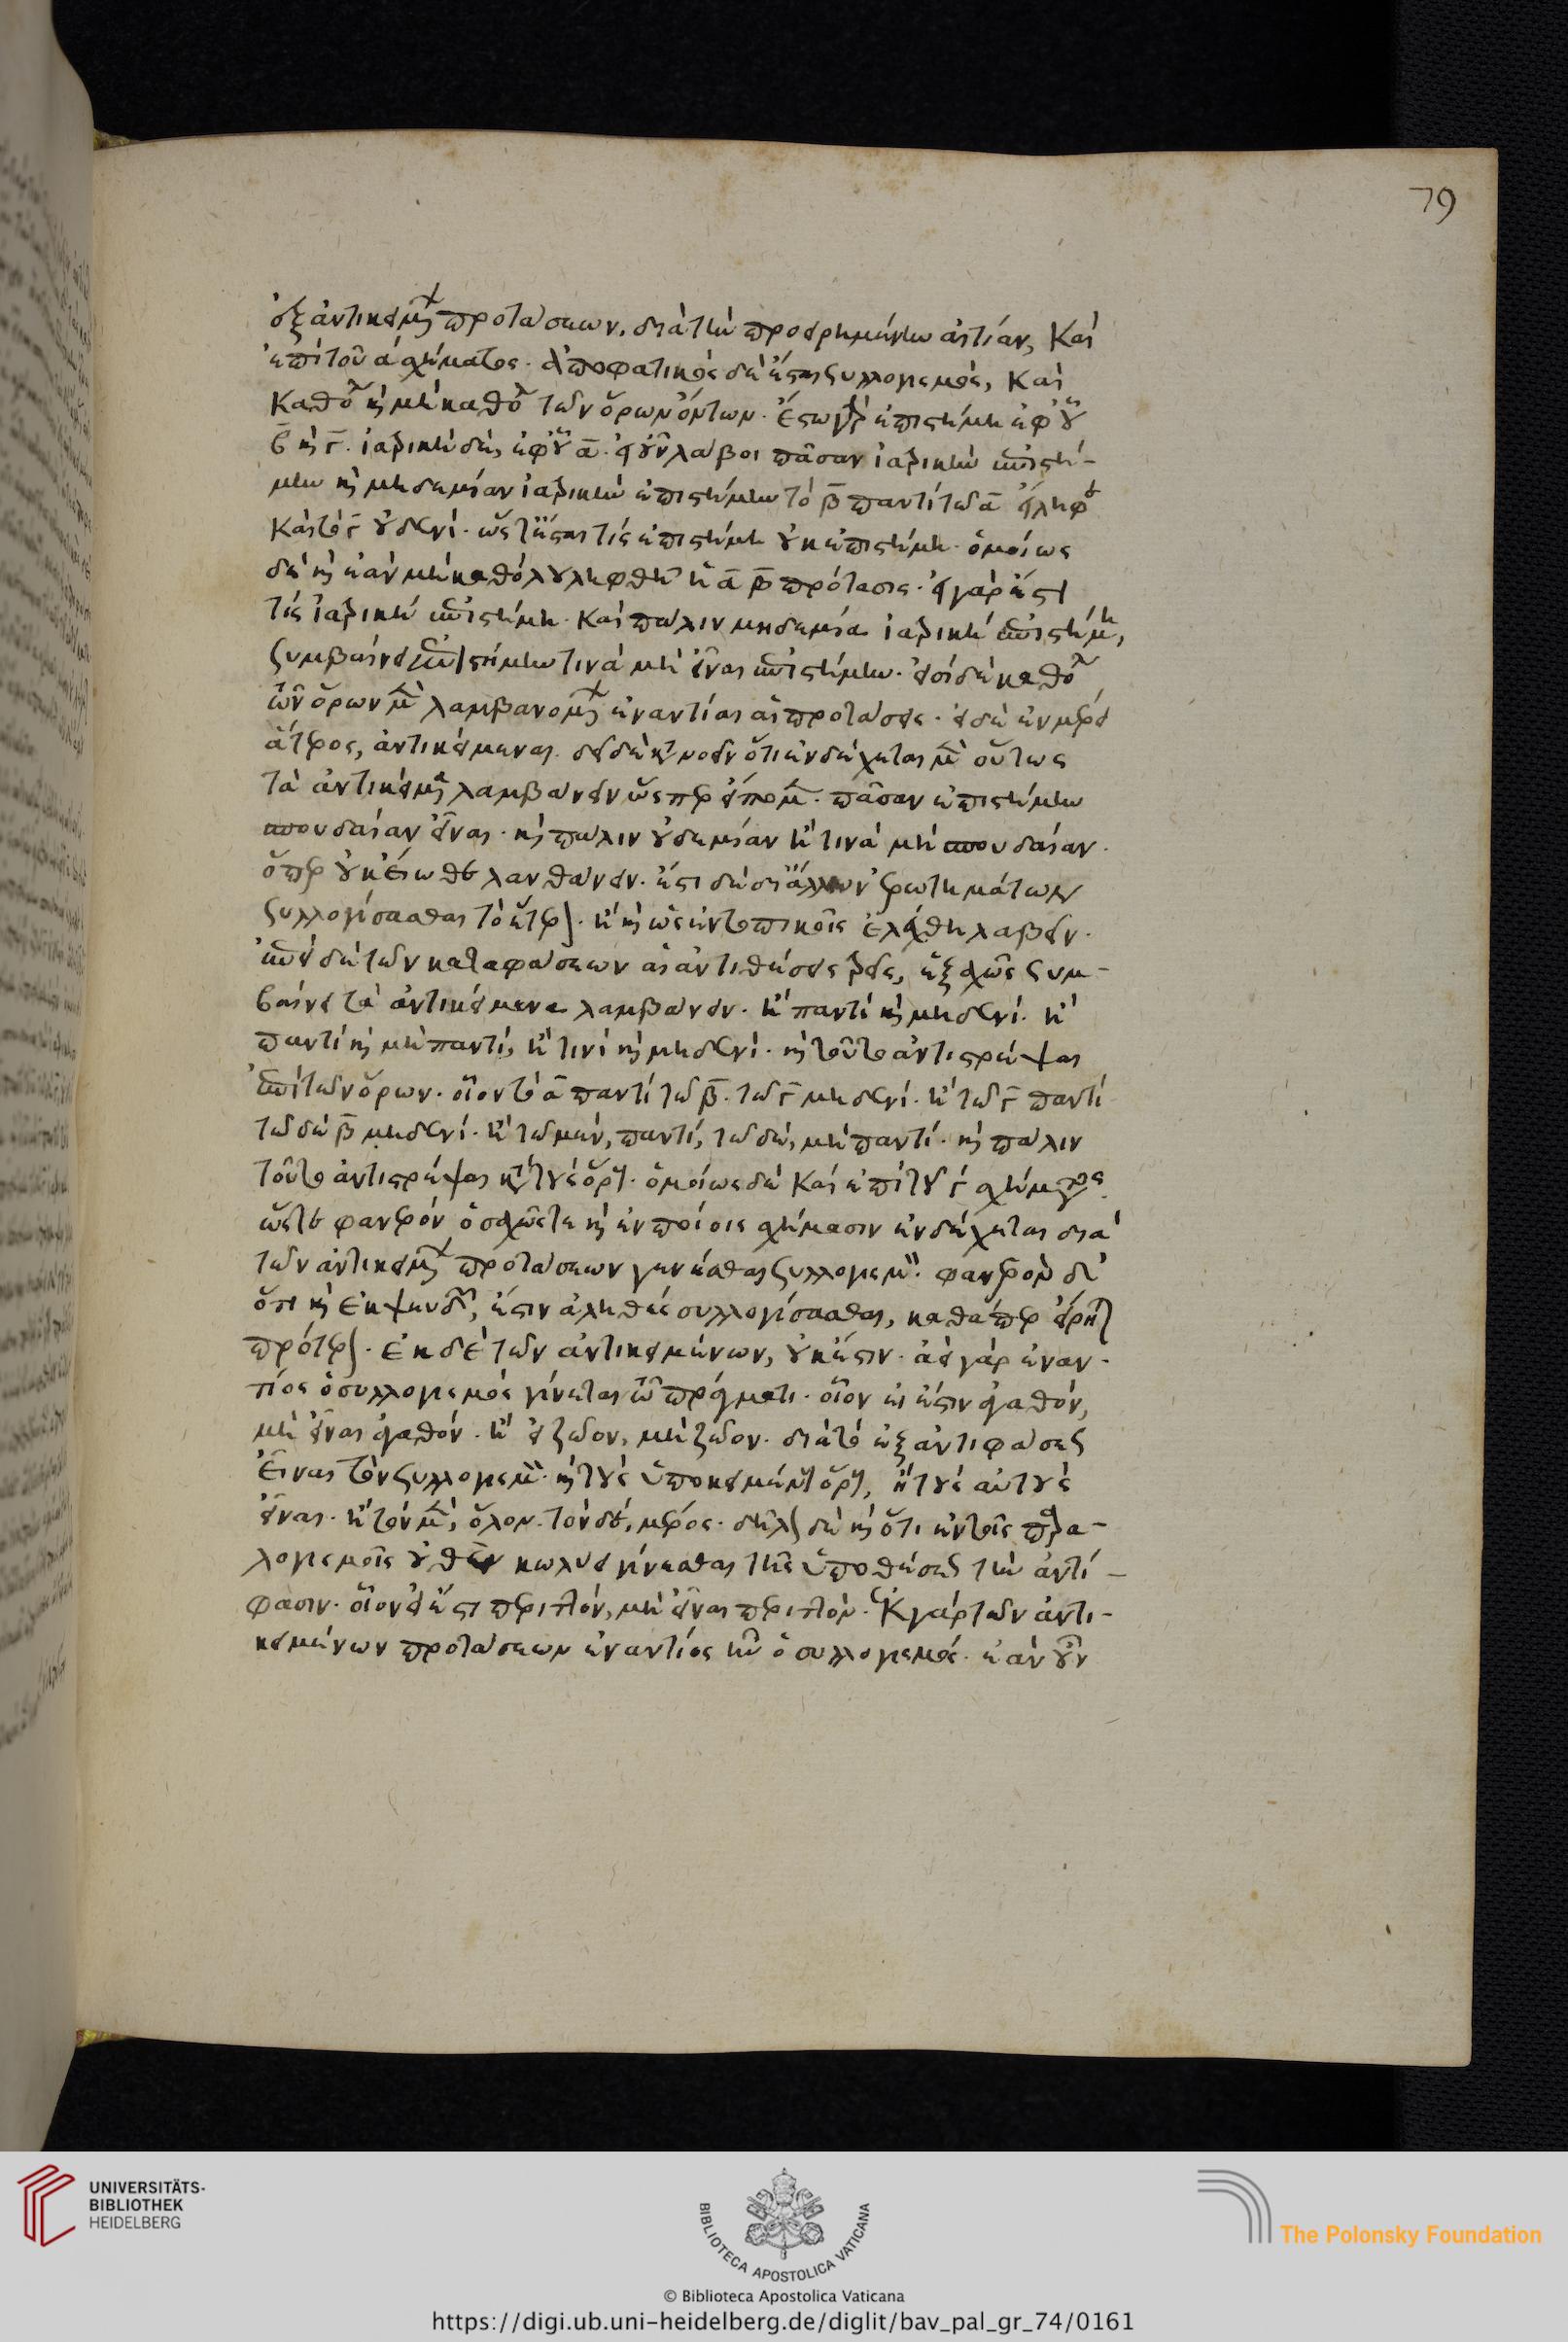 ἐξ ἀντικειμένων προτάσεων, διὰ τὴν προειρημένην αἰτίαν, Καὶ
ἐπὶ τοῦ ά σχήματος. ἀποφατικὸς δὲ ἔσται συλλογισμὸς, Καὶ
Καθόλου καὶ μὴ καθόλου τῶν ὅρων ὄντων. Ἔστω γὰρ ἐπιστήμη ἐφ' οὗ
β̄ καὶ γ̄. ἰατρικὴ δὲ, ἐφ' οὗ ᾱ. εἰ οὖν λάβοι πᾶσαν ἰατρικὴν ἐπιστή-
μην καὶ μηδεμίαν ἰατρικὴν ἐπιστήμην τὸ β̄ παντὶ τῶ ᾱ εἴληφε
Καὶ τὸ γ̄ οὐδενί. ὥστ' ἔσται τὶς ἐπιστήμη οὐκ ἐπιστήμη. ὁμοίως
δὲ καὶ ἐὰν μὴ καθόλου ληφθῆ ἡ ᾱ β̄ πρότασις. εἰ γάρ ἐστι
τὶς ἰατρικὴ ἐπιστήμη. Καὶ πάλιν μηδεμία ἰατρικὴ ἐπιστήμη,
συμβαίνει ἐπιστήμην τινὰ μὴ εἶναι ἐπιστήμην. εἰσὶ δὲ καθόλου
τῶν ὅρων μὲν λαμβανομένων ἐναντίαι αἱ προτάσεις. εἰ δὲ ἐν μέρει
ἅτερος, ἀντικείμεναι. δεῖ δὲ κατανοεῖν ὅτι ἐνδέχεται μὲν οὕτως
τὰ ἀντικείμενα λαμβάνειν ὥσπερ εἴπομεν. πᾶσαν ἐπιστήμην
σπουδαίαν εἶναι. καὶ πάλιν οὐδεμίαν ἢ τινὰ μὴ σπουδαίαν.
ὅπερ οὐκ εἴωθε λανθάνειν. ἔστι δὲ δι' ἄλλων ἐρωτημάτων
συλλογίσασθαι τὸ ἕτερον. ἢ καὶ ὡς ἐν τοπικοῖς ἐλέχθη λαβεῖν.
ἐπεὶ δὲ τῶν καταφάσεων αἱ ἀντιθέσεις τρεῖς, ἑξαχῶς συμ-
βαίνει τὰ ἀντικείμενα λαμβάνειν. ἢ παντὶ καὶ μηδενί. ἢ
παντὶ καὶ μὴ παντί, ἢ τινὶ καὶ μηδενί. καὶ τοῦτο ἀντιστρέψαι
ἐπὶ τῶν ὅρων. οἷον τὸ ᾱ παντὶ τῶ β̄. τῶ γ̄ μηδενί. ἢ τῶ γ̄ παντὶ
τῶ δὲ β̄ μηδενί. ἢ τῶ μὲν, παντί, τῶ δὲ, μὴ παντί. καὶ πάλιν
τοῦτο ἀντιστρέψαι κατὰ τοὺς ὅρους. ὁμοίως δὲ Καὶ ἐπὶ τοῦ γ̄ σχήματος.
ὥστε φανερὸν ὁσαχῶς τε καὶ ἐν ποίοις σχήμασιν ἐνδέχεται διὰ
τῶν ἀντικειμένων προτάσεων γενέσθαι συλλογισμόν. φανερὸν δὲ
ὅτι καὶ ἐκ ψευδῶν, ἔστιν ἀληθὲς συλλογίσασθαι, καθάπερ εἴρηται
πρότερον. ἐκ δὲ τῶν ἀντικειμένων, οὐκ ἔστιν. ἀεὶ γὰρ ἐναν-
τίος ὁ συλλογισμὸς γίνεται τῶ πράγματι. οἷον εἰ ἔστιν ἀγαθόν,
μὴ εἶναι ἀγαθόν. ἢ εἰ ζῶον, μὴ ζῶον. διὰ τὸ ἐξ ἀντιφάσεως
εἶναι τὸν συλλογισμόν. καὶ τοὺς ὑποκειμένους ὅρους, ἢ τοὺς αὐτοὺς
εἶναι. ἢ τὸν μὲν, ὅλον. τὸν δὲ, μέρος. δῆλον δὲ καὶ ὅτι ἐν τοῖς παρα-
λογισμοῖς οὐθὲν κωλύει γίνεσθαι τῆς ὑποθέσεως τὴν ἀντί-
φασιν. οἷον εἰ ἔστι περιττόν, μὴ εἶναι περιττόν. ἐκ γὰρ τῶν ἀντι-
κειμένων προτάσεων ἐναντίος ἦν ὁ συλλογισμός. ἐὰν οὖν
79
UNIVERSITÄTS-
BIBLIOTHEK
HEIDELBERG
BIBLIOTECA APOSTOLICA VATICANA
The Polonsky Foundation
© Biblioteca Apostolica Vaticana
https://digi.ub.uni-heidelberg.de/diglit/bav_pal_gr_74/0161